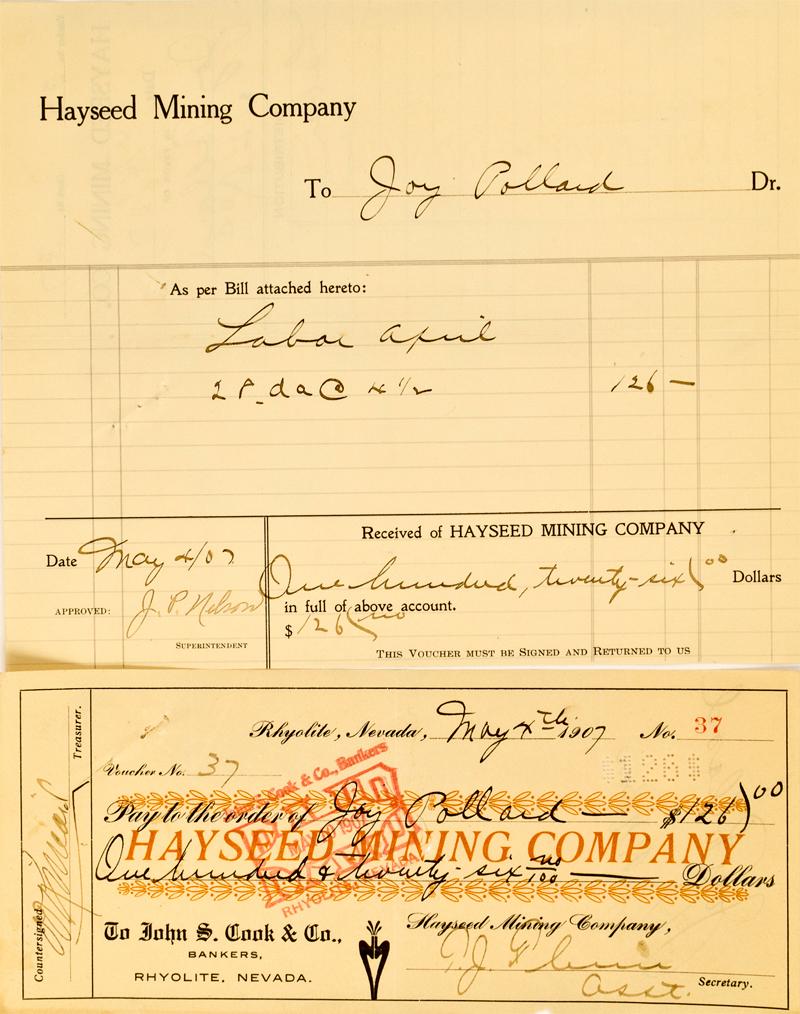 Hayseed Mining Company
To Joy Pollard Dr.
As per Bill attached hereto:
Labor April
28 da @ 4 1/2 126 —
Received of HAYSEED MINING COMPANY
Date May 4/07
One hundred, twenty-six 00 Dollars
APPROVED: J. P. Nelson
in full of above account.
SUPERINTENDENT
$ 126 no
THIS VOUCHER MUST BE SIGNED AND RETURNED TO US
Rhyolite, Nevada, May 4th 1907 No. 37
Voucher No. 37
$126$
Pay to the order of Joy Pollard — $126 00
HAYSEED MINING COMPANY
One hundred & twenty-six no/100 — Dollars
To John S. Cook & Co.,
BANKERS,
RHYOLITE, NEVADA.
Hayseed Mining Company,
Asst. Secretary.
Countersigned
Treasurer.
Cook & Co., Bankers
PAID
RHYOLITE, NEVADA